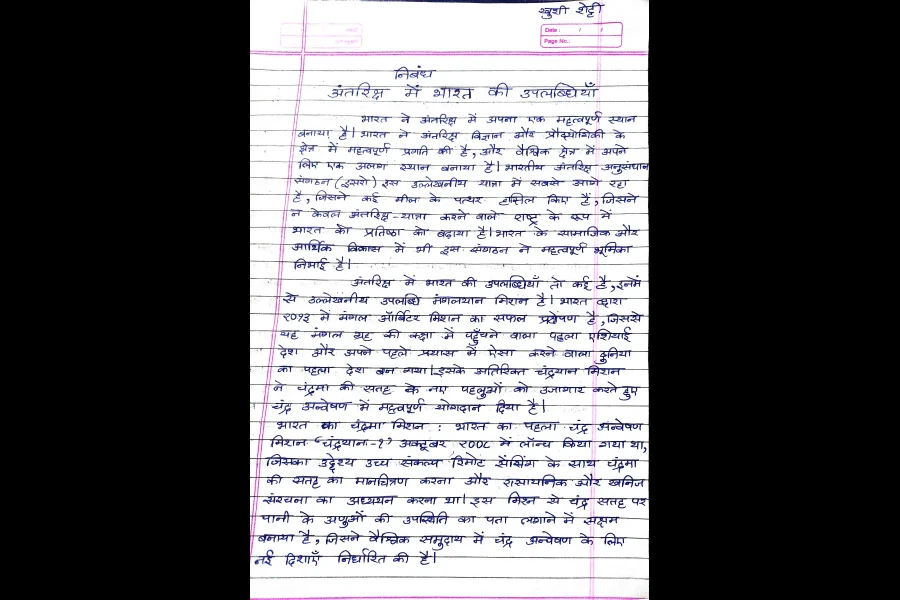 खुशी शेट्टी
Date : / /
Page No.:
निबंध
अंतरिक्ष में भारत की उपलब्धियाँ
भारत ने अंतरिक्ष में अपना एक महत्वपूर्ण स्थान
बनाया है। भारत ने अंतरिक्ष विज्ञान और प्रौद्योगिकी के
क्षेत्र में महत्वपूर्ण प्रगति की है, और वैश्विक क्षेत्र में अपने
लिए एक अलग स्थान बनाया है। भारतीय अंतरिक्ष अनुसंधान
संगठन (इसरो) इस उल्लेखनीय यात्रा में सबसे आगे रहा
है, जिसने कई मील के पत्थर हासिल किए हैं, जिसने
न केवल अंतरिक्ष-यात्रा करने वाले राष्ट्र के रूप में
भारत की प्रतिष्ठा को बढ़ाया है। भारत के सामाजिक और
आर्थिक विकास में भी इस संगठन ने महत्वपूर्ण भूमिका
निभाई है।
अंतरिक्ष में भारत की उपलब्धियाँ तो कई है, इनमें
से उल्लेखनीय उपलब्धि मंगलयान मिशन है। भारत द्वारा
२०१३ में मंगल ऑर्बिटर मिशन का सफल प्रक्षेपण है, जिससे
यह मंगल ग्रह की कक्षा में पहुँचने वाला पहला एशियाई
देश और अपने पहले प्रयास में ऐसा करने वाला दुनिया
का पहला देश बन गया। इसके अतिरिक्त चंद्रयान मिशन
ने चंद्रमा की सतह के नए पहलुओं को उजागार करते हुए
चंद्र अन्वेषण में महत्वपूर्ण योगदान दिया है।
भारत का चंद्रमा मिशन : भारत का पहला चंद्र अन्वेषण
मिशन 'चंद्रयान-१' अक्टूबर २००८ में लॉन्च किया गया था,
जिसका उद्देश्य उच्च संकल्प रिमोट सेंसिंग के साथ चंद्रमा
की सतह का मानचित्रण करना और रासायनिक और खनिज
संरचना का अध्ययन करना था। इस मिशन से चंद्र सतह पर
पानी के अणुओं की उपस्थिति का पता लगाने में सक्षम
बनाया है, जिसने वैश्विक समुदाय में चंद्र अन्वेषण के लिए
नई दिशाएँ निर्धारित की है।